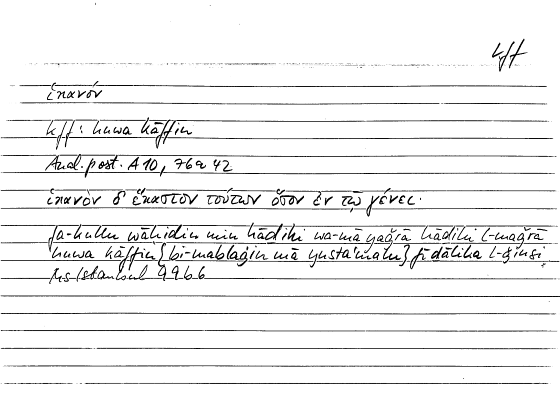 kff
ἱκανόν
kff: huwa kāffin
Anal. post. A 10, 76a 42
ἱκανὸν δ' ἕκαστον τούτων ὅσον ἐν τῷ γένει·
fa-kullu wāḥidin min hāḏihi wa-mā yaǧrā hāḏihi l-maǧrā
huwa kāffin {bi-mablaġin mā yustaʿmalu} fī ḏālika l-ǧinsi.
Ms Istanbul 9966